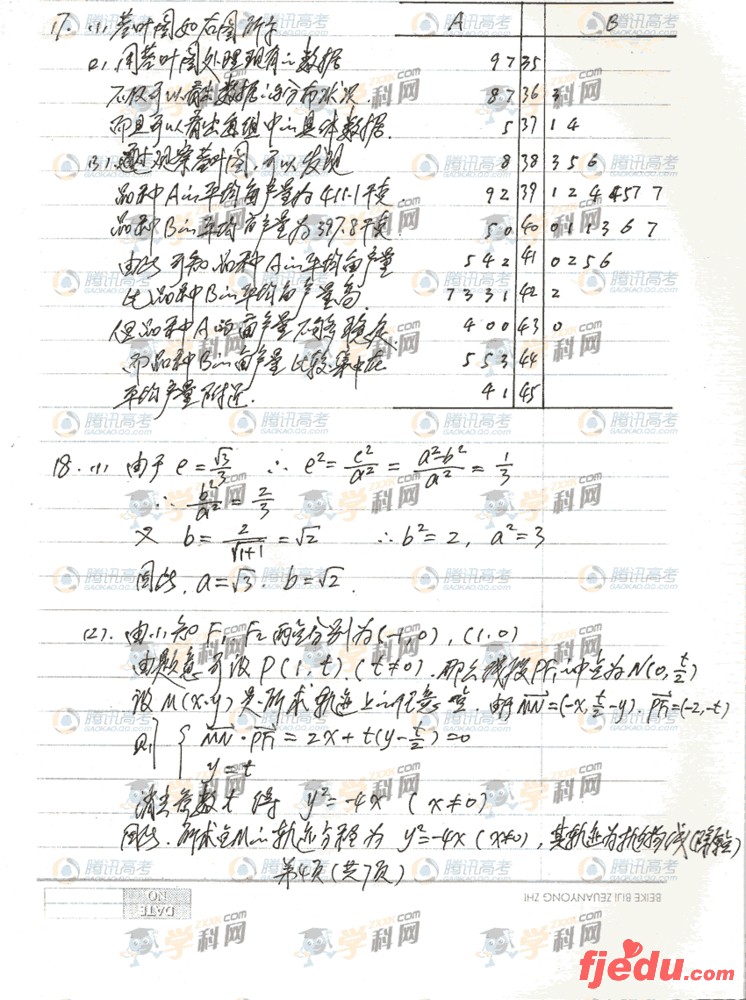 17. (1) 茎叶图如右图所示
(2) 用茎叶图处理现有的数据
不仅可以看出数据的分布状况
而且可以看出每组中的具体数据.
(3) 通过观察茎叶图,可以发现
品种A的平均亩产量为411.1千克.
品种B的平均亩产量为397.8千克
由此可知.品种A的平均亩产量
比品种B的平均亩产量高.
但品种A的亩产量不够稳定.
而品种B的亩产量比较集中在
平均产量附近.
A B
9 7 35
8 7 36 3
5 37 1 4
8 38 3 5 6
9 2 39 1 2 4 4 5 7 7
5 0 40 0 1 1 3 6 7
5 4 2 41 0 2 5 6
7 3 3 1 42 2
4 0 0 43 0
5 5 3 44
4 1 45
18. (1) 由于 e=√3/3 ∴ e²=c²/a²=(a²-b²)/a²=1/3
∴ b²/a²=2/3
又 b=2/√(1+1)=√2 ∴ b²=2, a²=3
因此, a=√3. b=√2.
(2). 由(1)知 F₁, F₂ 两点分别为(-1,0), (1,0)
由题意可设 P(1,t). (t≠0). 那么线段PF₁的中点为N(0,t/2)
设M(x,y)是所求轨迹上的任意点. 由于MN=(-x,t/2-y). PF₁=(-2,-t)
则 { MN·PF₁=2x+t(y-t/2)=0
y=t
消去参数t得 y²=-4x (x≠0)
因此.所求点M的轨迹方程为 y²=-4x (x≠0), 其轨迹为抛物线(除原点)
第4页(共7页)
DATE
NO
BEIKE BIJI ZEUANYONG ZHI
腾讯高考
GAOKAO.QQ.COM
学科网
ZXXK.COM
fjedu.com